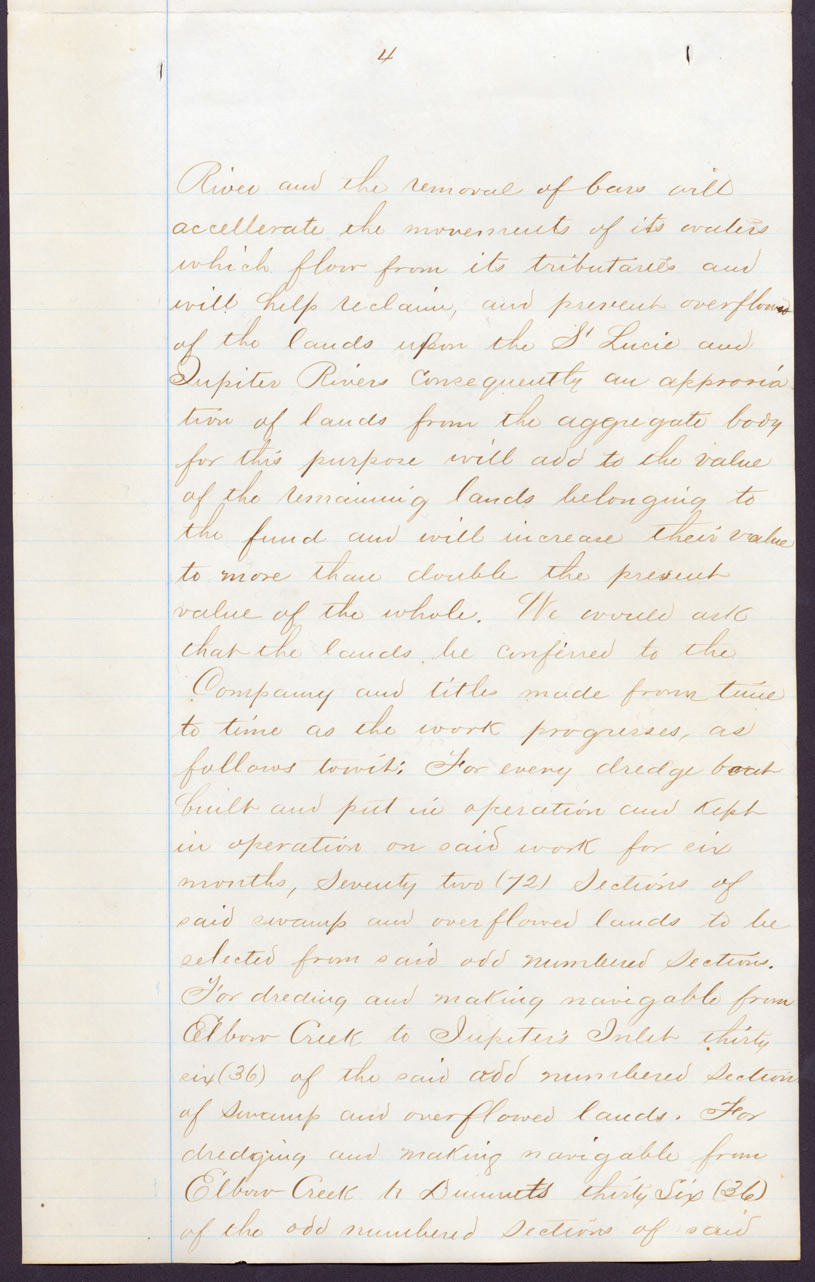 4
River and the removal of bars will
accellerate the movements of its waters
which flow from its tributaries and
will help reclaim, and prevent overflows
of the lands upon the St Lucie and
Jupiter Rivers Consequently an appropria
tion of lands from the aggregate body
for this purpose will add to the value
of the remaining lands belonging to
the fund and will increase their value
to more than double the present
value of the whole. We would ask
that the lands be conferred to the
Company and titles made from time
to time as the work progresses, as
follows towit: For every dredge boat
built and put in operation and kept
in operation on said work for six
months, Seventy two (72) Sections of
said swamp and overflowed lands to be
selected from said odd numbered Sections.
For dreding and making navigable from
Elbow Creek to Jupiter's Inlet thirty
six (36) of the said odd numbered Section
of Swamp and overflowed lands. For
dredging and making navigable from
Elbow Creek to Dummets thirty Six (36)
of the odd numbered Sections of said